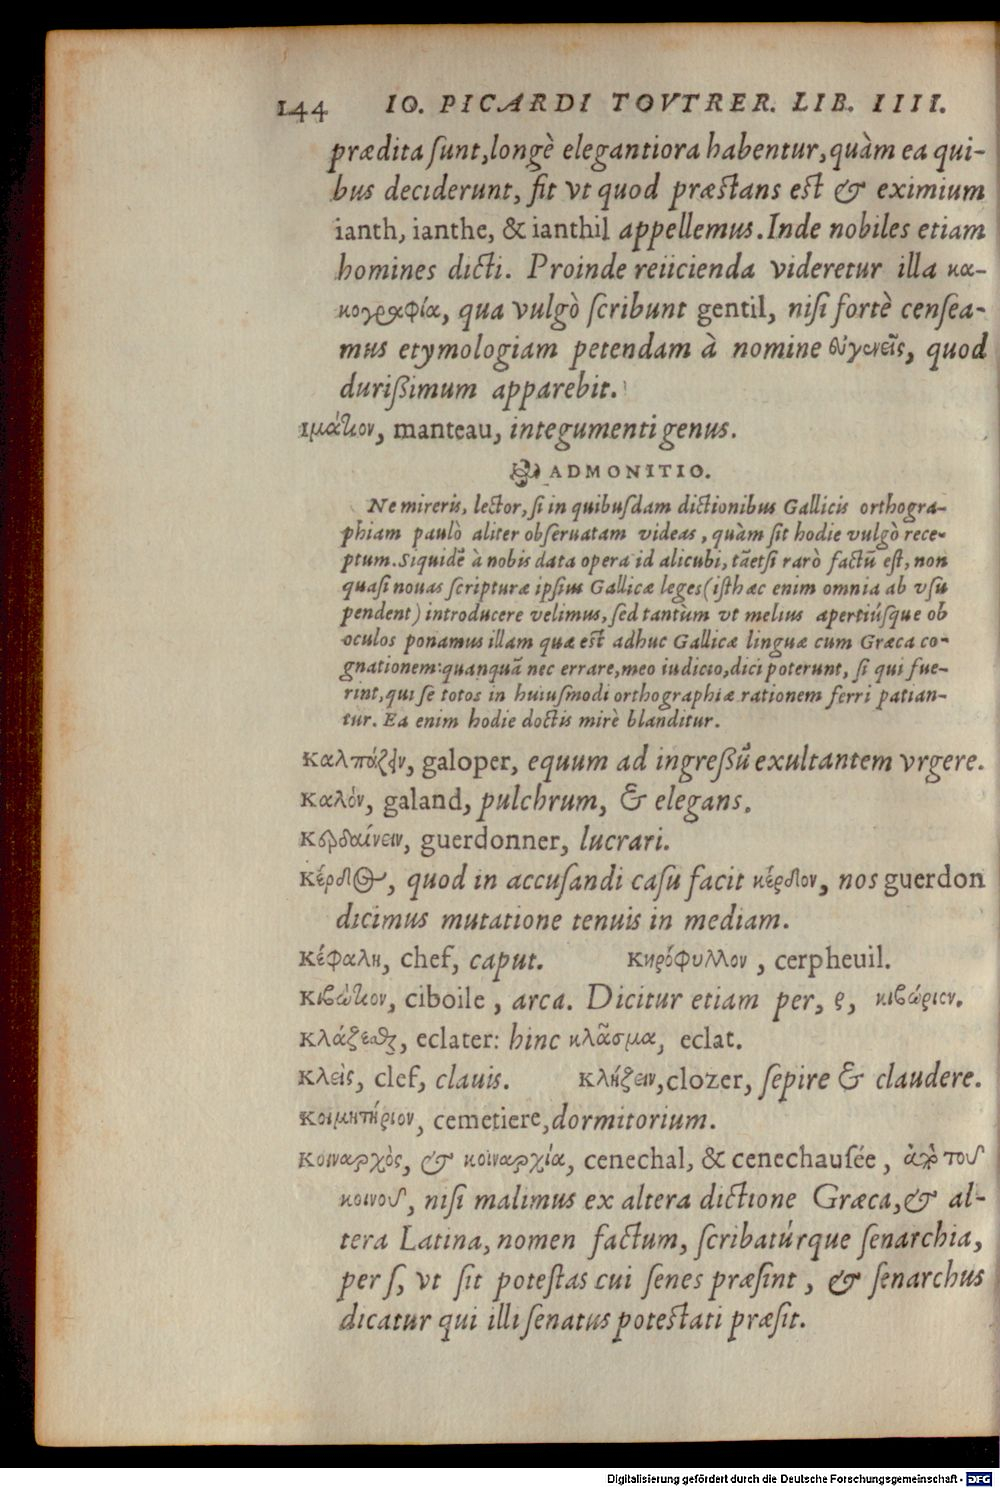 144 IO. PICARDI TOVTRER. LIB. IIII.
prædita ſunt, longè elegantiora habentur, quàm ea qui-
bus deciderunt, fit vt quod præstans est & eximium
ianth, ianthe, & ianthil appellemus. Inde nobiles etiam
homines dicti. Proinde reiicienda videretur illa κα-
κογραφία, qua vulgò ſcribunt gentil, niſi fortè cenſea-
mus etymologiam petendam à nomine εὐγενεῖς, quod
durißimum apparebit.
Ιμάτιον, manteau, integumenti genus.
ADMONITIO.
Ne mireris, lector, ſi in quibuſdam dictionibus Gallicis orthogra-
phiam paulò aliter obſeruatam videas, quàm ſit hodie vulgò rece-
ptum. Siquidē à nobis data opera id alicubi, tāetſi rarò factū est, non
quaſi nouas ſcripturæ ipſius Gallicæ leges (iſthæc enim omnia ab vſu
pendent) introducere velimus, ſed tantùm vt melius apertiúſque ob
oculos ponamus illam quæ est adhuc Gallicæ linguæ cum Græca co-
gnationem: quanquā nec errare, meo iudicio, dici poterunt, ſi qui fue-
rint, qui ſe totos in huiuſmodi orthographiæ rationem ferri patian-
tur. Ea enim hodie doctis mirè blanditur.
Καλπάζειν, galoper, equum ad ingreßū exultantem vrgere.
Καλόν, galand, pulchrum, & elegans.
Κερδαίνειν, guerdonner, lucrari.
Κέρδος, quod in accuſandi caſu facit κέρδιον, nos guerdon
dicimus mutatione tenuis in mediam.
Κέφαλη, chef, caput. Κηρόφυλλον, cerpheuil.
Κιβώτιον, ciboile, arca. Dicitur etiam per, ρ, κιβώριον.
Κλάζεσθαι, eclater: hinc κλᾶσμα, eclat.
Κλεὶς, clef, clauis. Κλήζειν, clozer, ſepire & claudere.
Κοιμητήριον, cemetiere, dormitorium.
Κοιναρχὸς, & κοιναρχία, cenechal, & cenechauſée, ἀπὸ τοῦ
κοινοῦ, niſi malimus ex altera dictione Græca, & al-
tera Latina, nomen factum, ſcribatúrque ſenarchia,
per ſ, vt ſit poteſtas cui ſenes præſint, & ſenarchus
dicatur qui illi ſenatus potestati præſit.
Digitalisierung gefördert durch die Deutsche Forschungsgemeinschaft - DFG